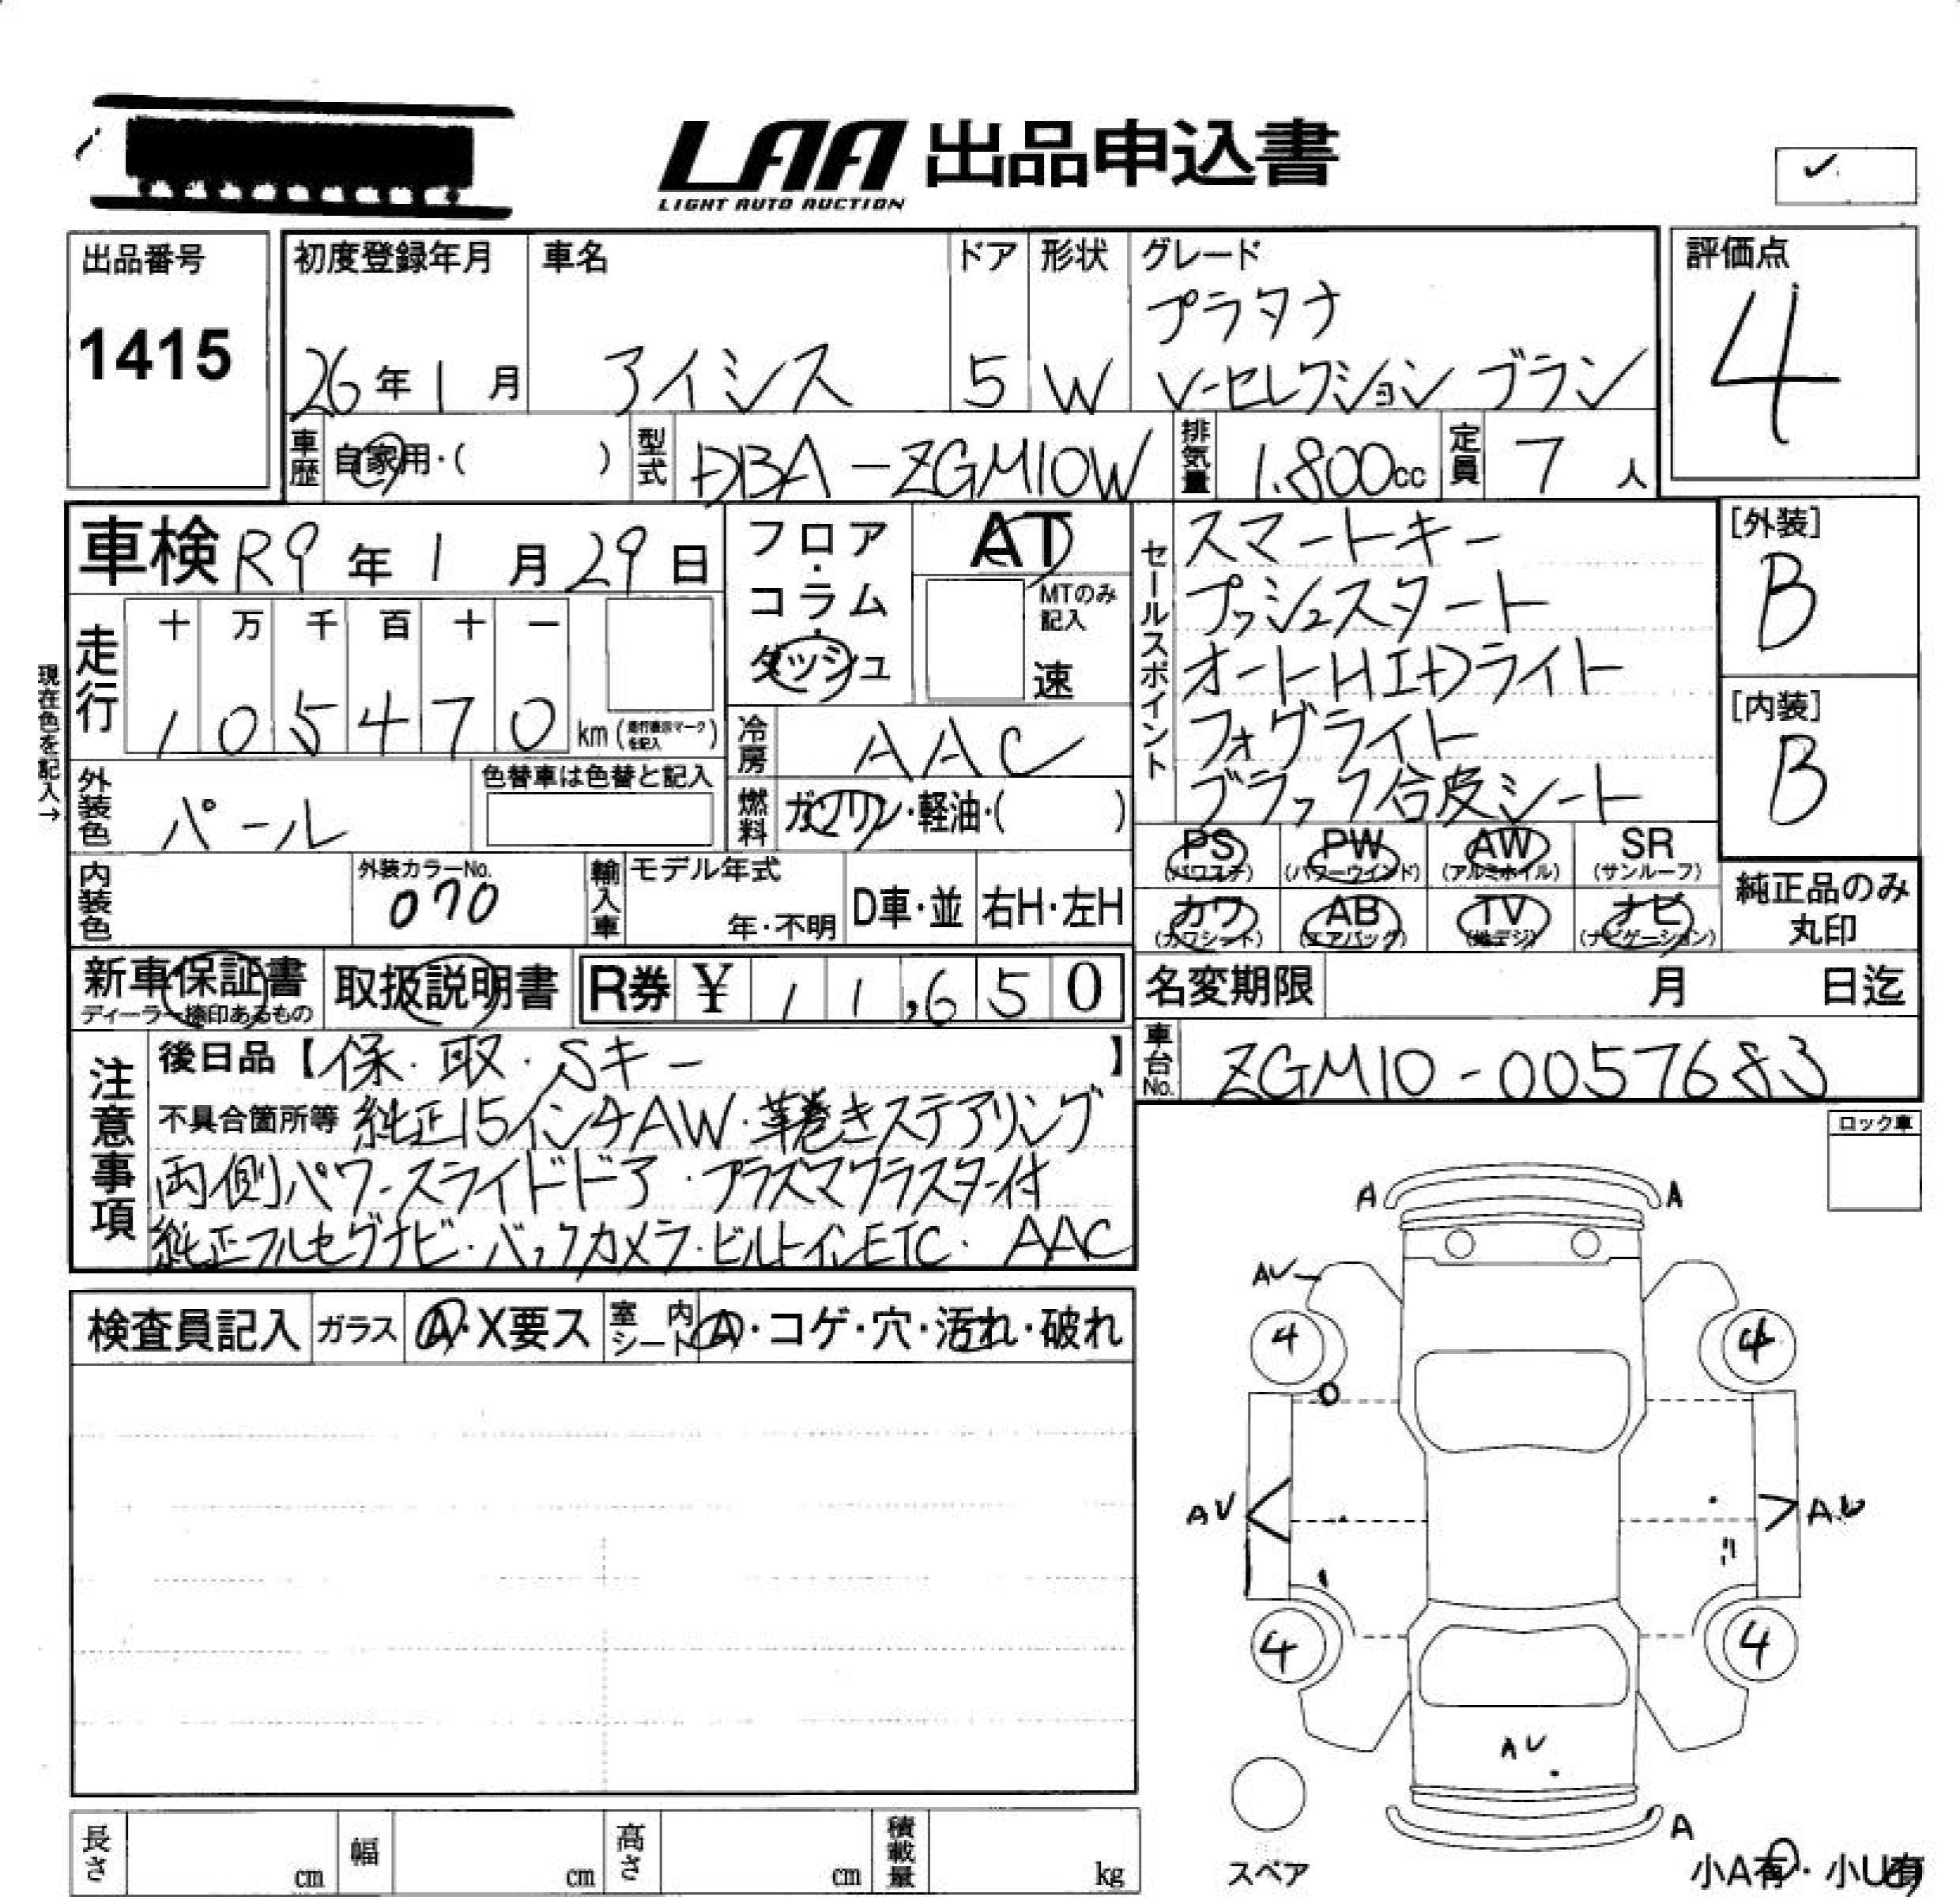 LAA 出品申込書
LIGHT AUTO AUCTION
出品番号
1415
初度登録年月
26年1月
車名
アイシス
ドア
5
形状
W
グレード
プラタナ
V-セレクション ブラン
評価点
4
車歴 自家用・( )
型式 DBA-ZGM10W
排気量 1,800cc
定員 7人
車検 R9年1月29日
フロア・コラム・ダッシュ
AT
MTのみ記入
速
セールスポイント
スマートキー
プッシュスタート
オートHIDライト
フォグライト
ブラック合皮シート
[外装]
B
[内装]
B
現在色を記入→
走行 十万千百十一
105470 km(走行表示マークを記入)
冷房 AAC
外装色 パール
色替車は色替と記入
燃料 ガソリン・軽油・( )
PS (パワステ) PW (パワーウインド) AW (アルミホイル) SR (サンルーフ)
カワ (カワシート) AB (エアバッグ) TV (地デジ) ナビ (ナビゲーション)
純正品のみ丸印
内装色
外装カラーNo.
070
輸入車 モデル年式 年・不明 D車・並 右H・左H
新車保証書
ディーラー捺印あるもの
取扱説明書
R券 ¥ 11,650
名変期限 月 日迄
車台No. ZGM10-0057683
注意事項
後日品【保・取・Sキー】
不具合箇所等 純正15インチAW・革巻きステアリング
両側パワースライドドア・プラズマクラスター付
純正フルセグナビ・バックカメラ・ビルトインETC・AAC
ロック車
検査員記入 ガラス A・X要ス 室内シート A・コゲ・穴・汚れ・破れ
A A
AV
4 4
AV AU
4 4
AV
A
スペア
小A有・小U有
長さ cm 幅 cm 高さ cm 積載量 kg